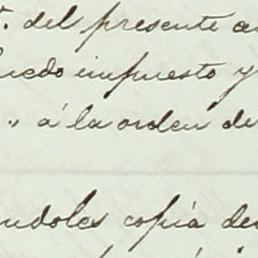 . del presente a
uedo impuesto y
" á la orden de
ndoles copia de